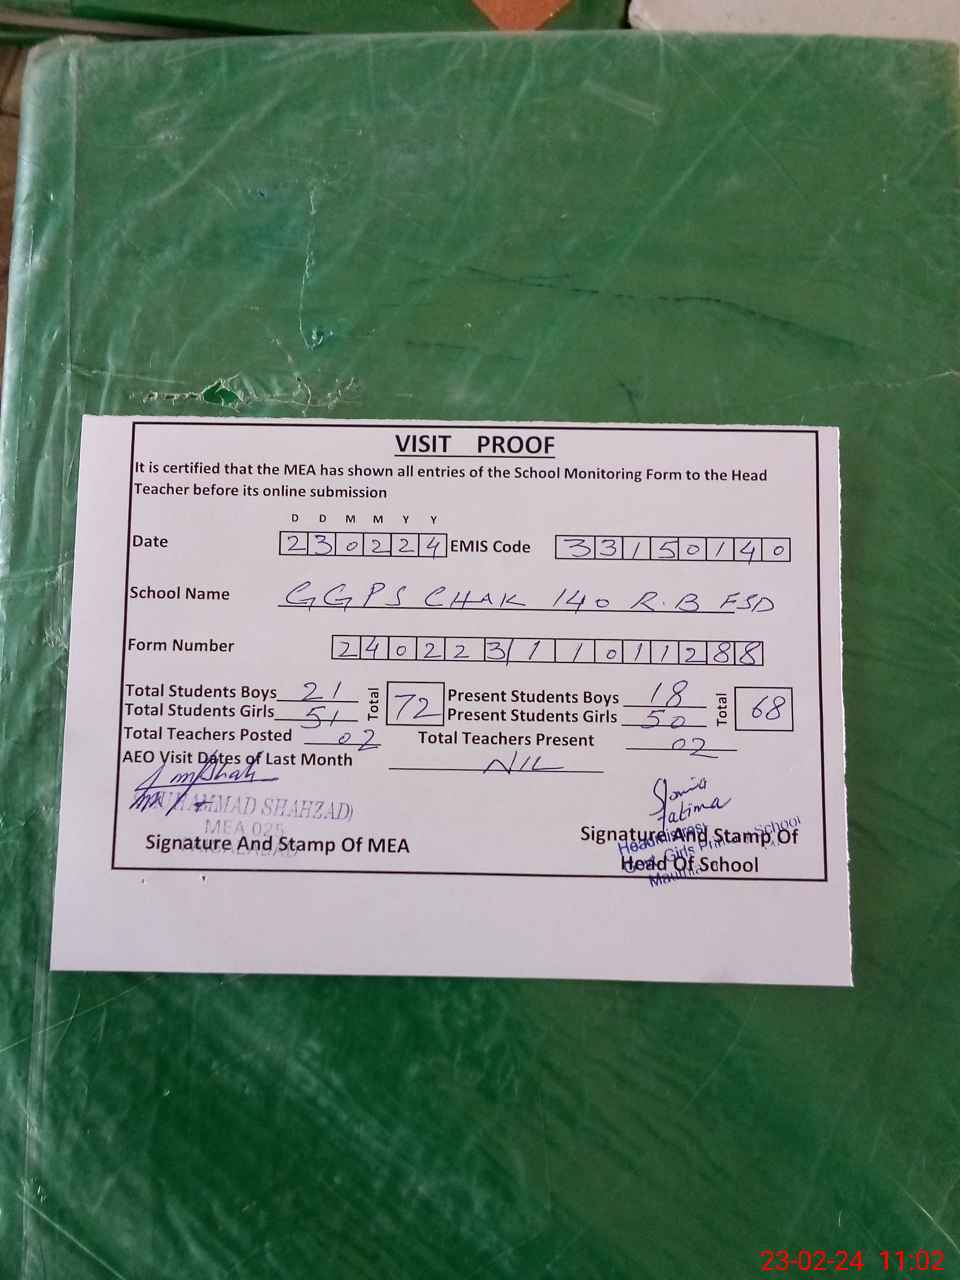 VISIT PROOF
It is certified that the MEA has shown all entries of the School Monitoring Form to the Head
Teacher before its online submission
D D M M Y Y
Date 230224 EMIS Code 33150140
School Name GGPS CHAK 140 R.B FSD
Form Number 240223/11011288
Total Students Boys 21 Total 72 Present Students Boys 18 Total 68
Total Students Girls 51 Present Students Girls 50
Total Teachers Posted 02 Total Teachers Present 02
AEO Visit Dates of Last Month NIL
Sonia
Fatima
(MUHAMMAD SHAHZAD)
MEA 025
FAISALABAD
Signature And Stamp Of MEA
Signature And Stamp Of
Head Of School
Headmistress
Govt. Girls Primary School
23-02-24 11:02